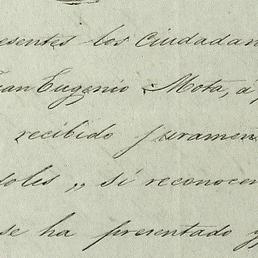 esentes los Ciudadan
an Eugenio Mota, á
recibido juramen
doles „ si reconocen
se ha presentado y